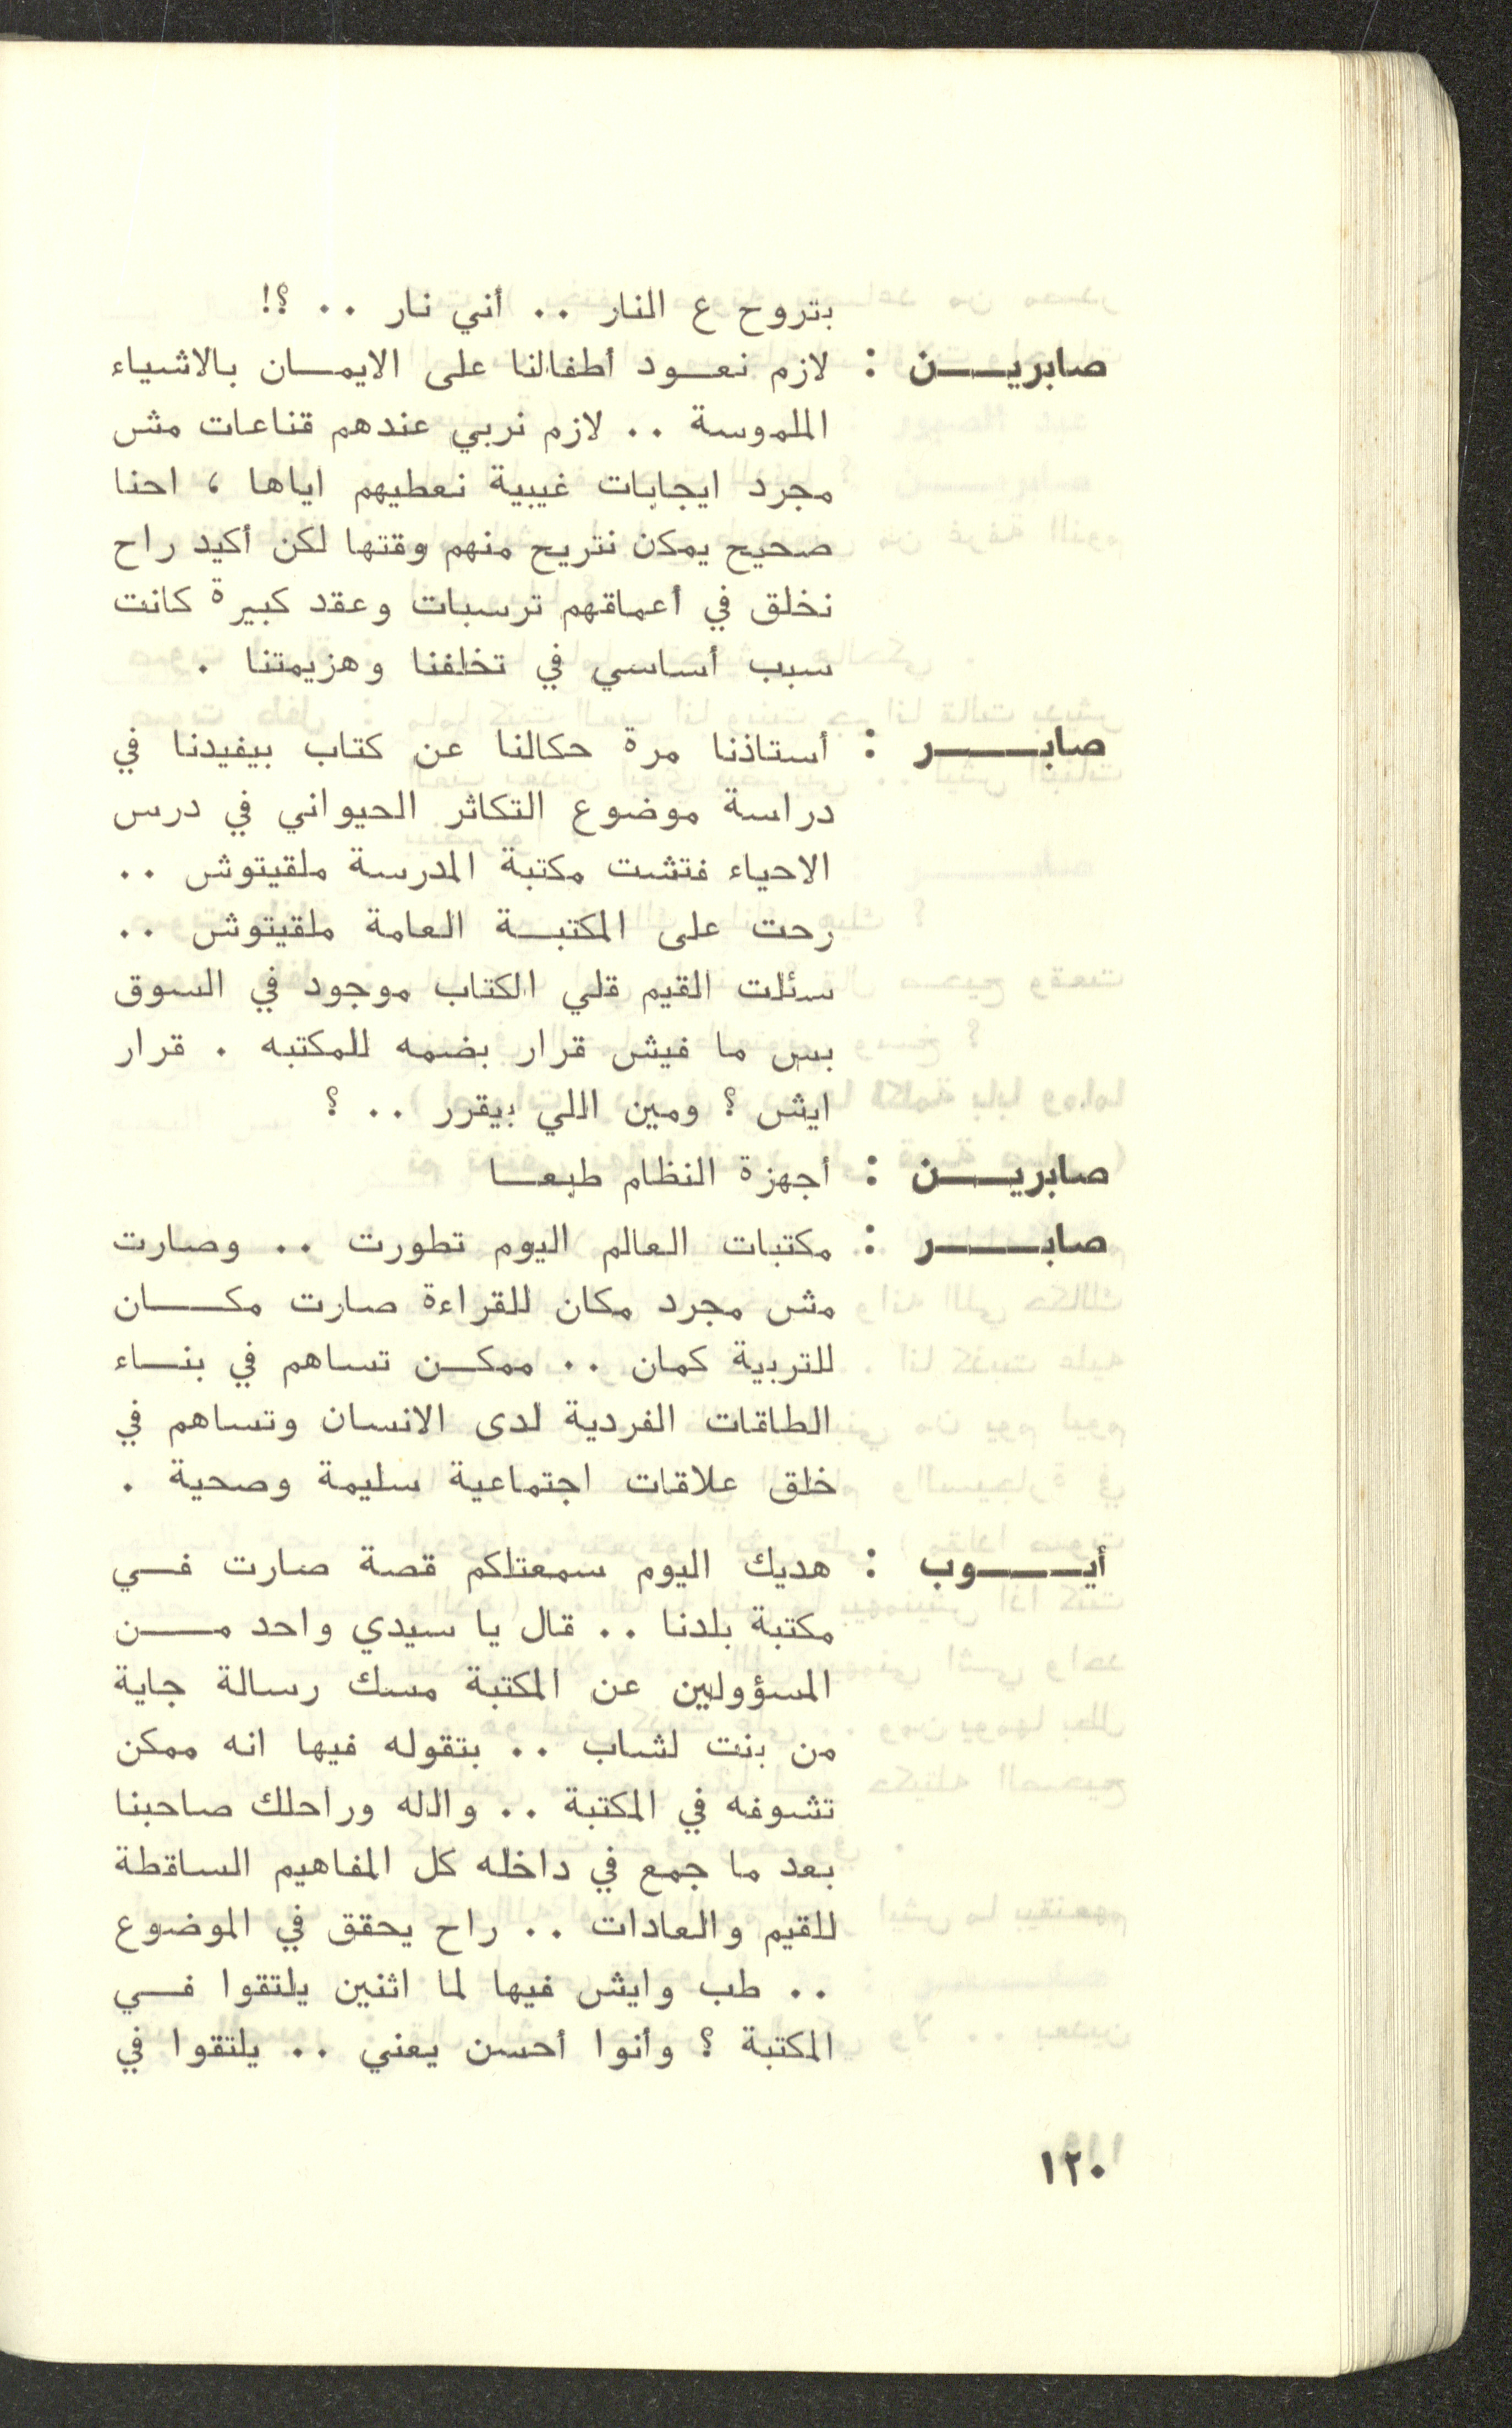 بتروح ع النار .. أني نار .. ؟!
صابريـن : لازم نعـود أطفالنا على الايمـان بالاشياء
الملموسة .. لازم نربي عندهم قناعات مش
مجرد ايجابات غيبية نعطيهم اياها ، احنا
صحيح يمكن نتريح منهم وقتها لكن أكيد راح
نخلق في أعماقهم ترسبات وعقد كبيرة كانت
سبب أساسي في تخلفنا وهزيمتنا .
صابـر : أستاذنا مرة حكالنا عن كتاب بيفيدنا في
دراسة موضوع التكاثر الحيواني في درس
الاحياء فتشت مكتبة المدرسة ملقيتوش ..
رحت على المكتبـة العامة ملقيتوش ..
سئلت القيم قلي الكتاب موجود في السوق
بس ما فيش قرار بضمه للمكتبه . قرار
ايش ؟ ومين اللي بيقرر .. ؟
صابريـن : أجهزة النظام طبعـا
صابـر : مكتبات العالم اليوم تطورت .. وصارت
مش مجرد مكان للقراءة صارت مكـان
للتربية كمان .. ممكـن تساهم في بنـاء
الطاقات الفردية لدى الانسان وتساهم في
خلق علاقات اجتماعية سليمة وصحية .
أيـوب : هديك اليوم سمعتلكم قصة صارت فـي
مكتبة بلدنا .. قال يا سيدي واحد مـن
المسؤولين عن المكتبة مسك رسالة جاية
من بنت لشاب .. بتقوله فيها انه ممكن
تشوفه في المكتبة .. والله وراحلك صاحبنا
بعد ما جمع في داخله كل المفاهيم الساقطة
للقيم والعادات .. راح يحقق في الموضوع
.. طب وايش فيها لما اثنين يلتقوا فـي
المكتبة ؟ وأنوا أحسن يعني .. يلتقوا في
١٢٠